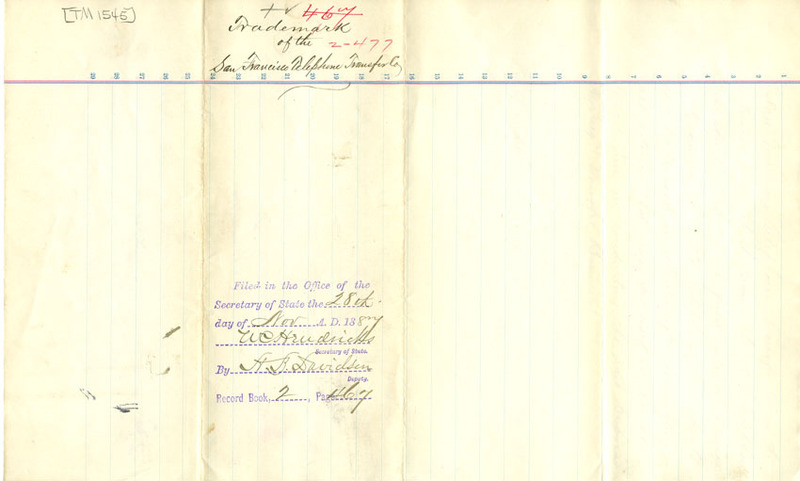 [TM 1545]
467
Trademark
of the 2-477
San Francisco Telephone Transfer Co
29 28 27 26 25 24 23 22 21 20 19 18 17 16 15 14 13 12 11 10 9 8 7 6 5 4 3 2 1
Filed in the Office of the
Secretary of State the 28th
day of Nov A. D. 1887
W C Hendricks
Secretary of State.
By H. B. Davidson
Deputy.
Record Book, 2, Page 467